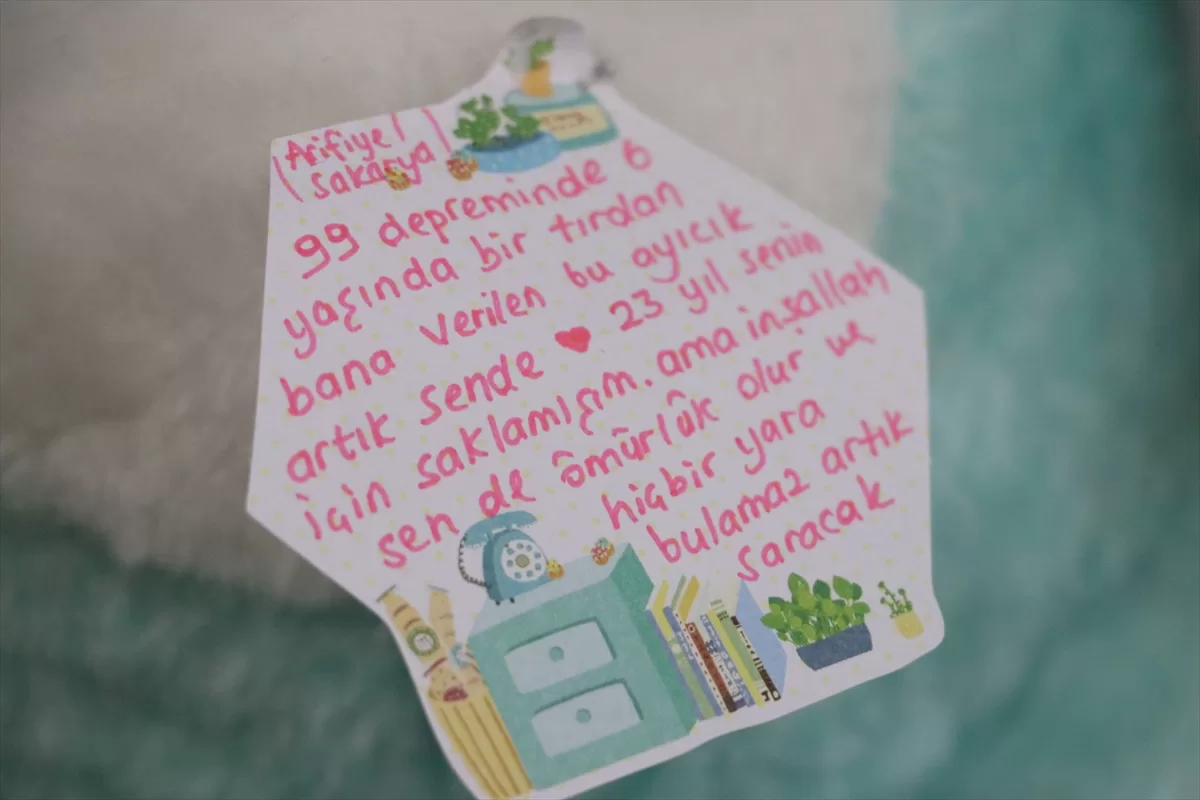 Arifiye/
Sakarya
99 depreminde 6
yaşında bir tırdan
bana verilen bu ayıcık
artık sende ♥ 23 yıl senin
için saklamışım. ama inşallah
sen de ömürlük olur ve
hiçbir yara
bulamaz artık
saracak